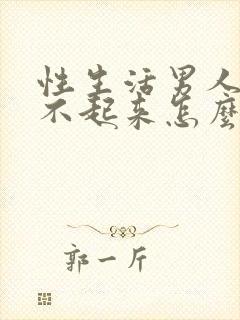 性生活男人
不起来怎麽
郭一斤